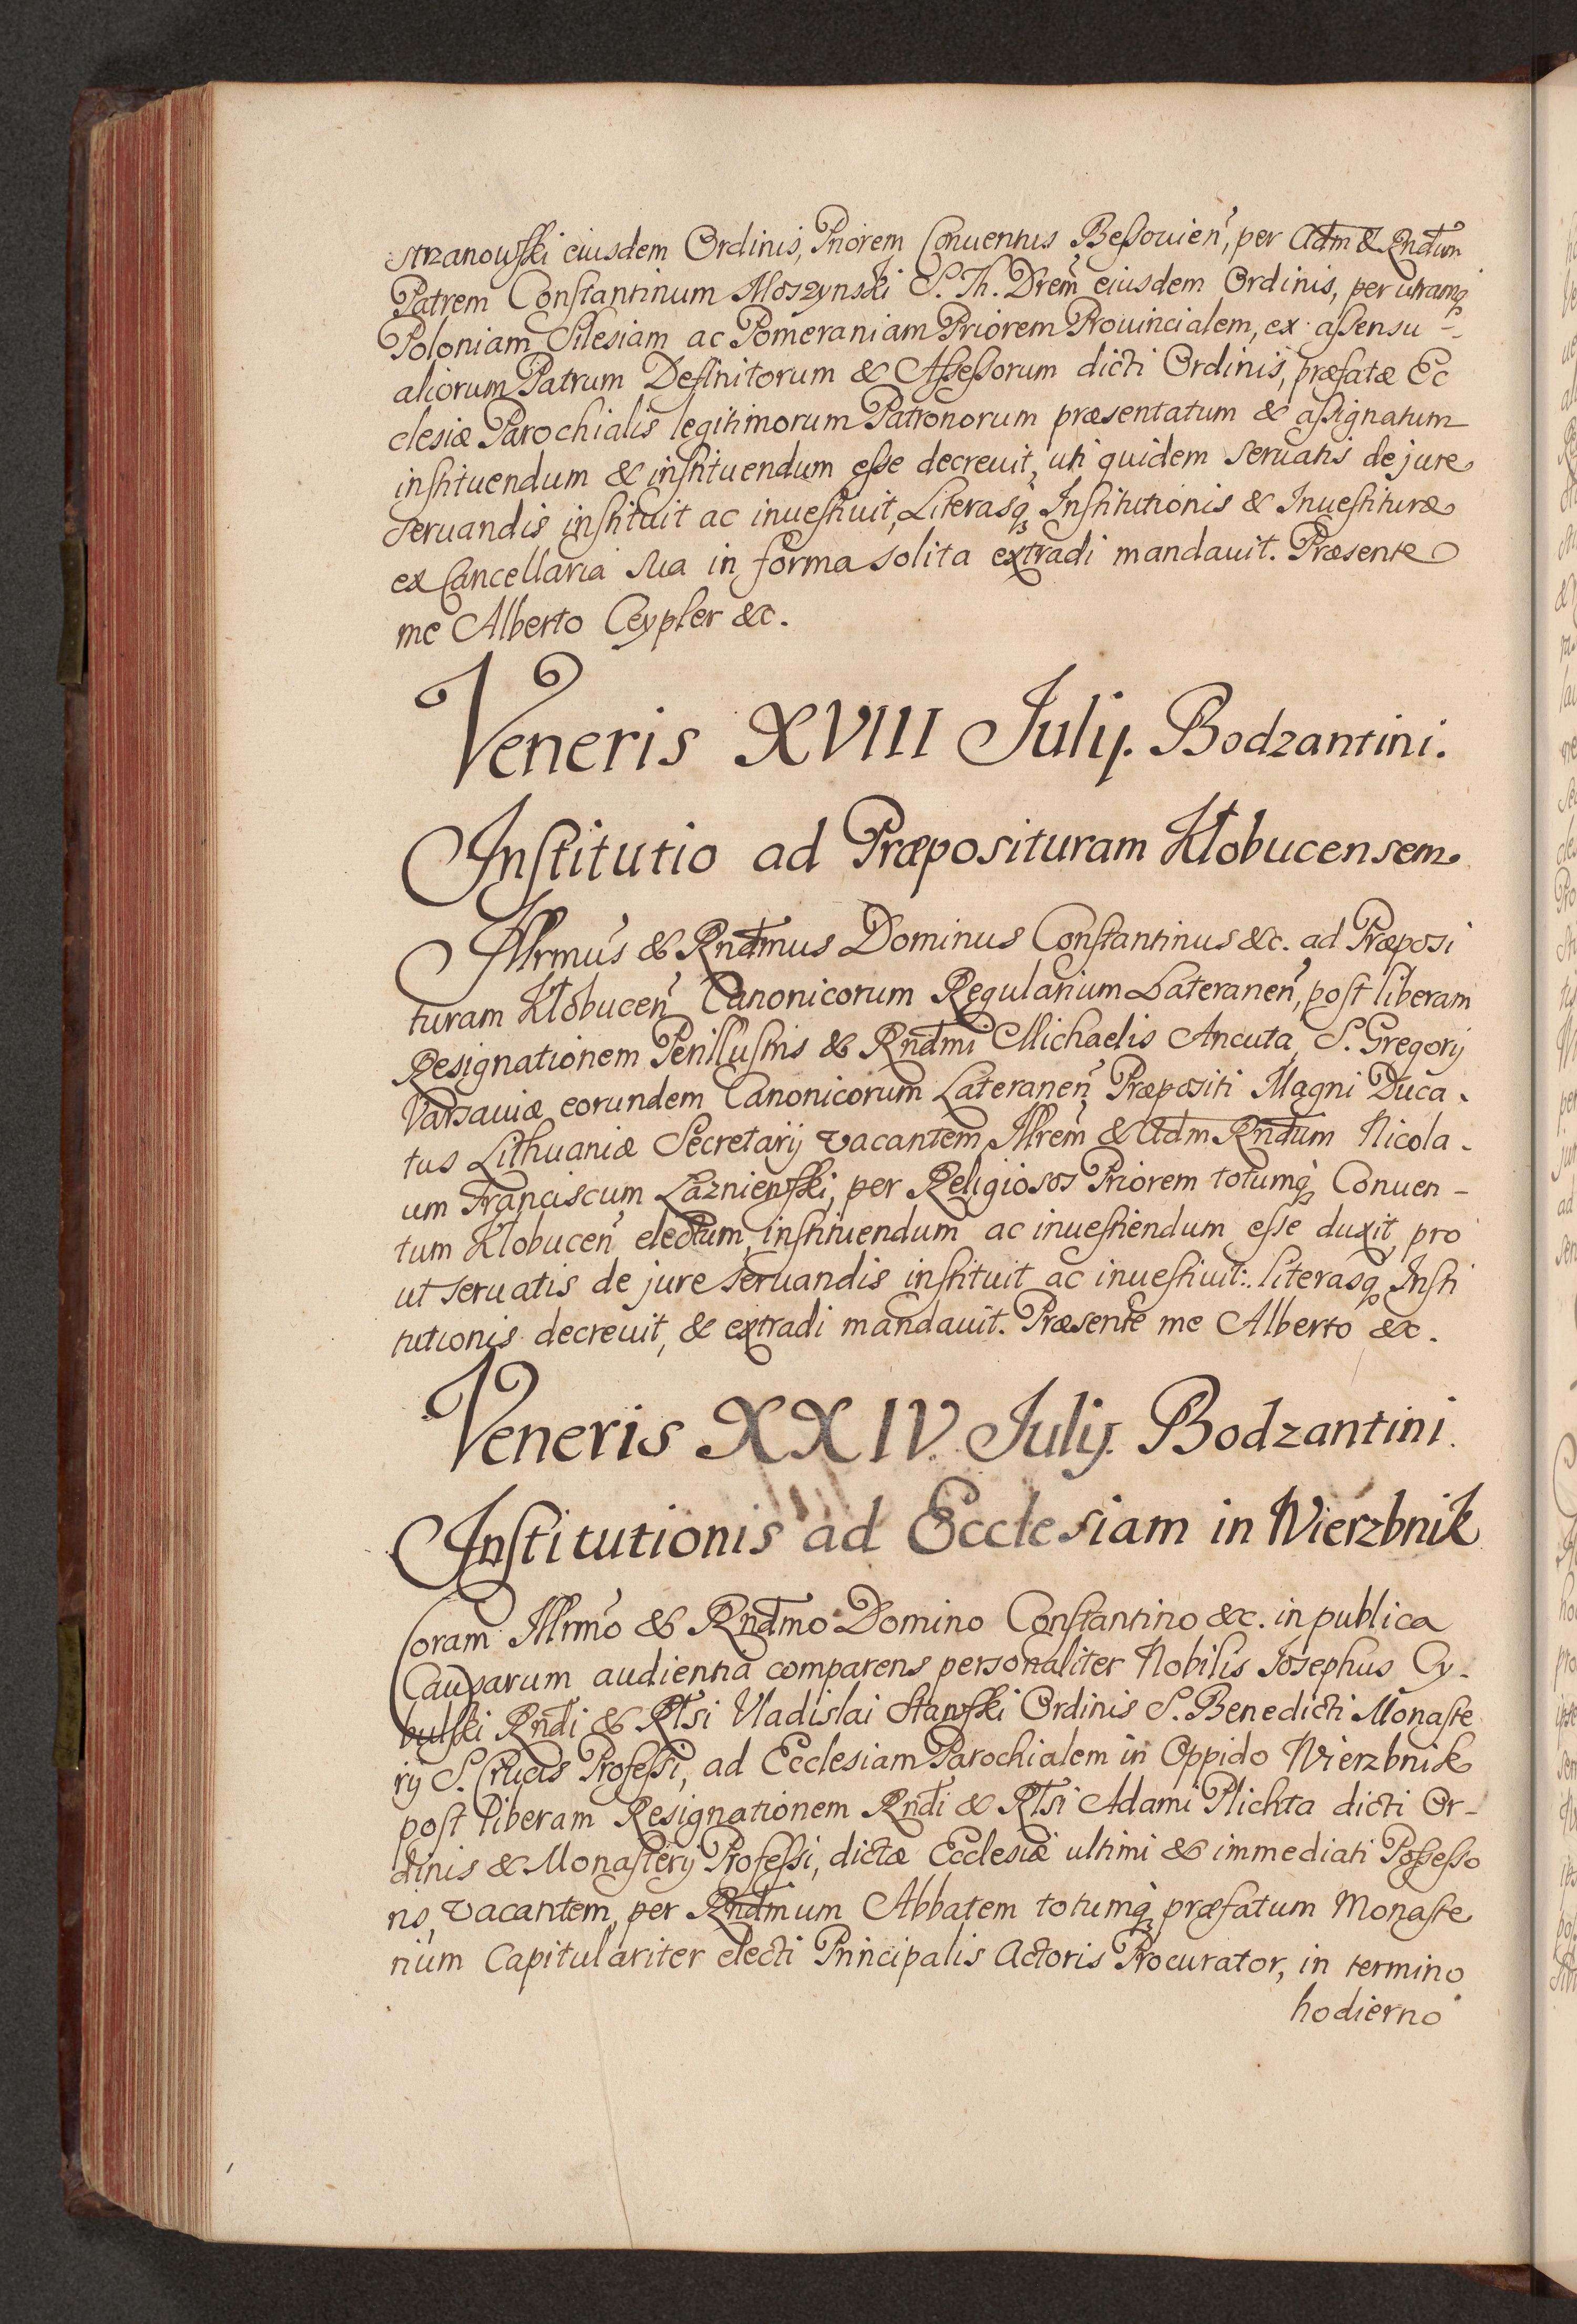 strzanowski eiusdem Ordinis, Priorem Conuentus Beßouien̄, per Adm & Rndum
Patrem Constantinum Moszynski S. Th. Drem̄ eiusdem Ordinis, per utramq̢
Poloniam Silesiam ac Pomeraniam Priorem Prouincialem, ex aßensu -
aliorum Patrum Definitorum & Aßeßorum dicti Ordinis, præfatæ Ec
clesiæ Parochialis legitimorum Patronorum præsentatum & aßignatum
instituendum & instituendum eße decreuit, uti quidem seruatis de jure
seruandis instituit ac inuestiuit, Literasq̢ Institutionis & Inuestituræ
ex Cancellaria sua in forma solita extradi mandauit. Præsente
me Alberto Ceypler &c.
Veneris XVIII Julij. Bodzantini.
Institutio ad Præposituram Kłobucensem.
Illrmus & Rndmus Dominus Constantinus &c. ad Præposi
turam Kłobucen̄ Canonicorum Regularium Lateranen̄, post liberam
Resignationem Perillustris & Rndmi Michaelis Ancuta, S. Gregorij
Varsauiæ eorundem Canonicorum Lateranen̄ Præpositi Magni Duca-
tus Lithuaniæ Secretarij vacantem, Illrem̄ & Adm Rndum Nicola-
um Franciscum Łazniewski, per Religiosos Priorem totumq̢ Conuen-
tum Kłobucen̄ electum, instituendum ac inuestiendum esse duxit, pro
ut seruatis de jure seruandis instituit ac inuestiuit: literasq̢ Insti
tutionis decreuit, & extradi mandauit. Præsente me Alberto &c.
Veneris XXIV. Julij. Bodzantini.
Institutionis ad Ecclesiam in Wierzbnik
Coram Illrmo & Rndmo Domino Constantino &c. in publica
Causarum audientia comparens personaliter Nobilis Josephus Cy-
bulski Rndi & Rlsi Vladislai Stawski Ordinis S. Benedicti Monaste
rij S. Crucis Profeßi, ad Ecclesiam Parochialem in Oppido Wierzbnik
post liberam Resignationem Rndi & Rlsi Adami Plichta dicti Or-
dinis & Monasterij Profeßi, dictæ Ecclesiæ ultimi & immediati Poßeßo
ris, vacantem, per Rndmum Abbatem totumq̢ præfatum Monaste
rium Capitulariter electi Principalis Actoris Procurator, in termino
hodierno